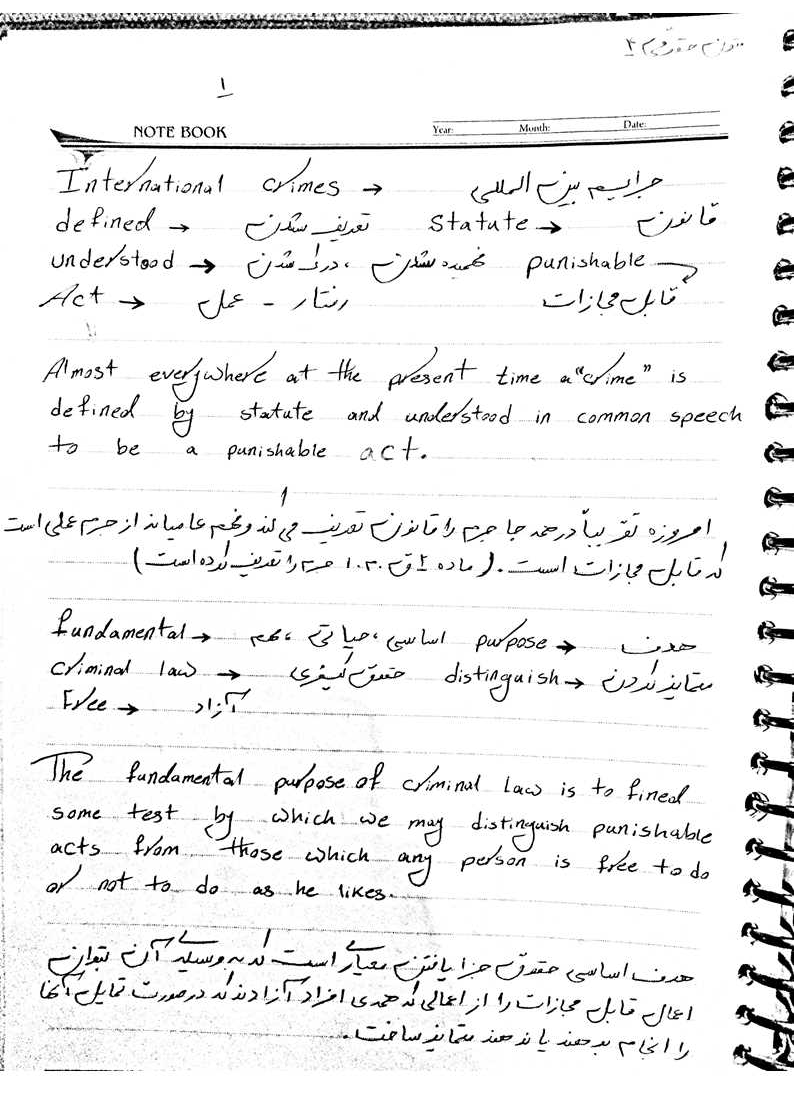 متون حقوقی ۴
۱
NOTE BOOK Year: Month: Date:
International crimes → جرایم بین المللی
defined → تعریف شدن statute → قانون
understood → فهمیده شدن ، درک شدن punishable →
Act → رفتار - عمل قابل مجازات
Almost everywhere at the present time a "crime" is
defined by statute and understood in common speech
to be a punishable act.
۱
امروزه تقریباً در همه جا جرم را قانون تعریف می کند و فهم عامیانه از جرم عملی است
که قابل مجازات است. (ماده ۲ ق.م.ا. جرم را تعریف کرده است)
fundamental → اساسی ، حیاتی ، مهم purpose → هدف
criminal law → حقوق کیفری distinguish → متمایز کردن
Free → آزاد
The fundamental purpose of criminal law is to fined
some test by which we may distinguish punishable
acts from those which any person is free to do
or not to do as he likes.
هدف اساسی حقوق جزا یافتن معیاری است که به وسیله ی آن بتوان
اعمال قابل مجازات را از اعمالی که همه ی افراد آزادند که در صورت تمایل آنها
را انجام بدهند یا ندهند متمایز ساخت.